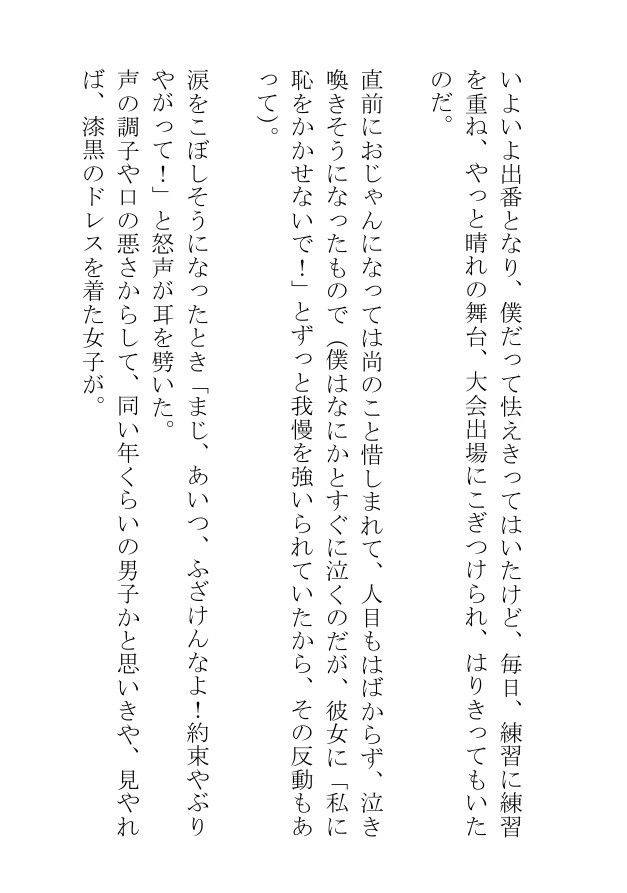 いよいよ出番となり、僕だって怯えきってはいたけど、毎日、練習に練習
を重ね、やっと晴れの舞台、大会出場にこぎつけられ、はりきってもいた
のだ。
直前におじゃんになっては尚のこと惜しまれて、人目もはばからず、泣き
喚きそうになったもので（僕はなにかとすぐに泣くのだが、彼女に「私に
恥をかかせないで！」とずっと我慢を強いられていたから、その反動もあ
って）。
涙をこぼしそうになったとき「まじ、あいつ、ふざけんなよ！約束やぶり
やがって！」と怒声が耳を劈いた。
声の調子や口の悪さからして、同い年くらいの男子かと思いきや、見やれ
ば、漆黒のドレスを着た女子が。